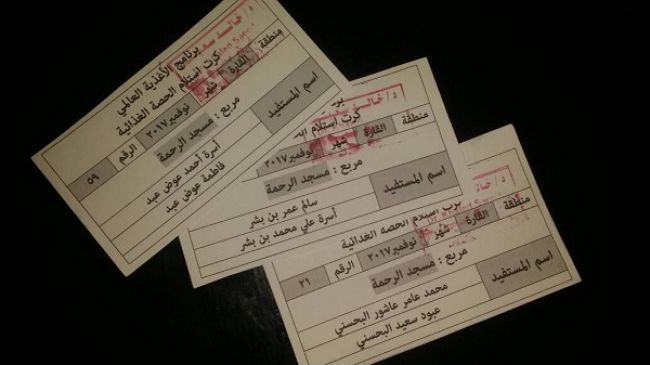 د/ خالد سعيد
برنامج الأغذية العالمي
كرت استلام الحصة الغذائية
منطقة القارة شهر نوفمبر ٢٠١٧ الرقم ٥٩
مربع : مسجد الرحمة
اسم المستفيد
أسرة أحمد عوض عبد
فاطمة عوض عبد
د/ خالد
كرت استلام
منطقة القارة شهر نوفمبر ٢٠١٧
مربع : مسجد الرحمة
اسم المستفيد
سالم عمر بن بشر
أسرة علي محمد بن بشر
استلام الحصة الغذائية
منطقة القارة شهر نوفمبر ٢٠١٧ الرقم ٢١
مربع : مسجد الرحمة
اسم المستفيد
محمد عامر عاشور البحسني
عبود سعيد البحسني